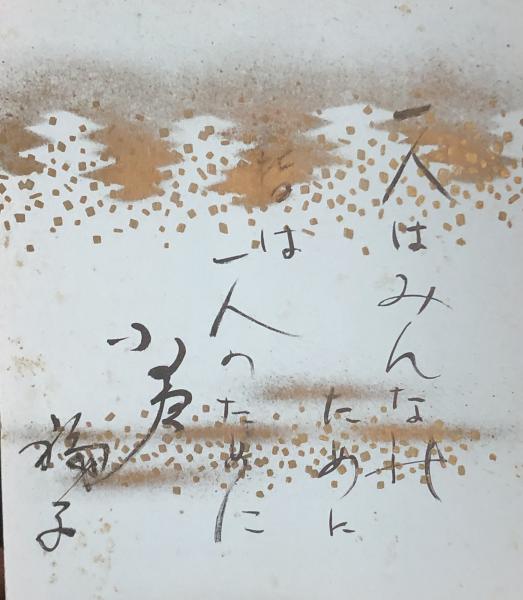 一人はみんなの
ために
皆は
一人のために
小
子